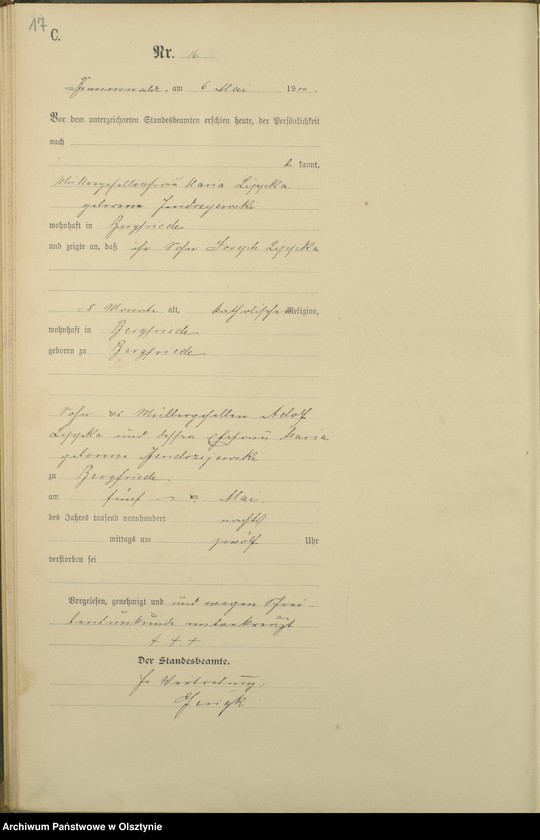 17
C.
Nr. 16.
am 6 Mai 1900.
Vor dem unterzeichneten Standesbeamten erschien heute, der Persönlichkeit
nach
be kannt,
Müllergesellenfrau Maria Lippka
geborene Jendrzejewski
wohnhaft in Bergfriede
und zeigte an, daß ihr Sohn Joseph Lippka
8 Monate alt, katholischer Religion,
wohnhaft in Bergfriede
geboren zu Bergfriede
Sohn des Müllergesellen Adolf
Lippka und dessen Ehefrau Maria
geborene Jendrzejewski
zu Bergfriede
am fünf ten Mai
des Jahres tausend neunhundert nachts
mittags um zwölf Uhr
verstorben sei
Vorgelesen, genehmigt und und wegen Schrei
bensunkunde unterkreuzt
+ + +
Der Standesbeamte.
In Vertretung:
Archiwum Państwowe w Olsztynie